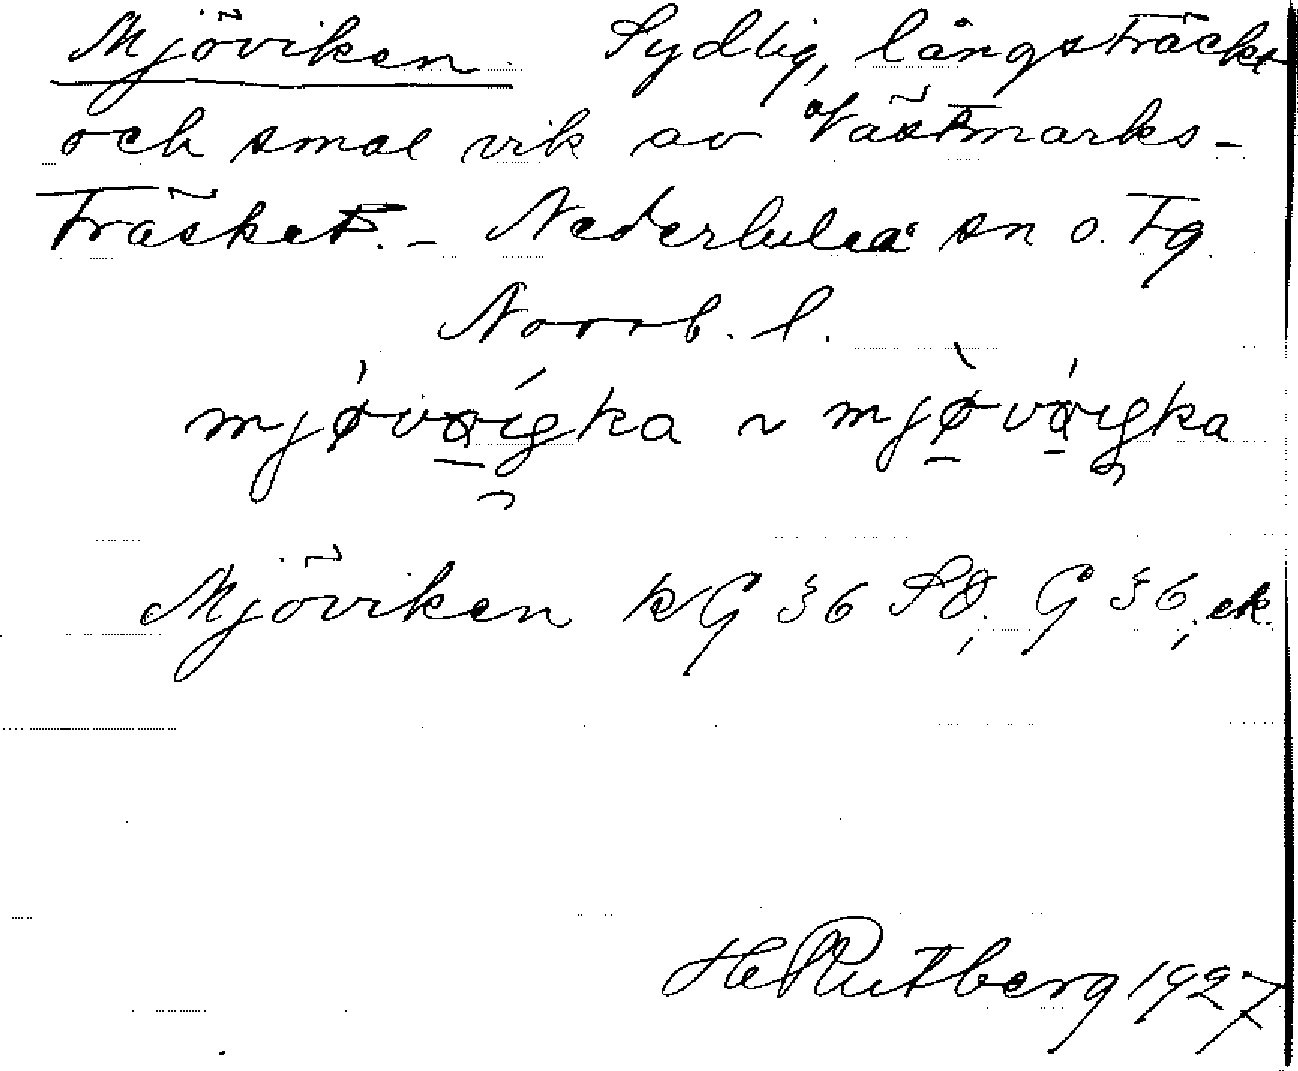 Mjöviken Sydlig, långsträckt
och smal vik av Västmarks-
träsket. - Nederluleå sn o. tg
Norrb. l.
Mjöviken kG 36 SO, G 36, ek.
HeRutberg 1927